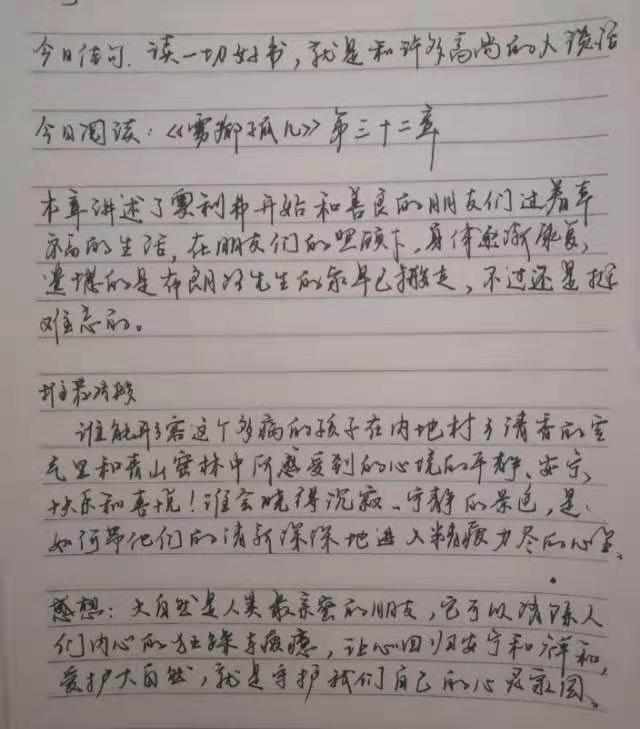 今日佳句：读一切好书，就是和许多高尚的人谈话
今日阅读：《雾都孤儿》第三十二章
本章讲述了奥利弗开始和善良的朋友们过着幸
福的生活，在朋友们的照顾下，身体逐渐康复，
遗憾的是布朗洛先生的家早已搬走，不过还是挺
难忘的。
推荐片段
谁能形容这个多病的孩子在内地村子清香的空
气里和青山密林中所感受到的心境的平静、安宁、
快乐和喜悦！谁会晓得沉寂、宁静的景色，是
如何带他们的清新深深地进入精疲力尽的心里。
感想：大自然是人类最亲密的朋友，它可以消除人
们内心的狂躁与疲惫，让心回归安宁和祥和，
爱护大自然，就是守护我们自己的心灵家园。